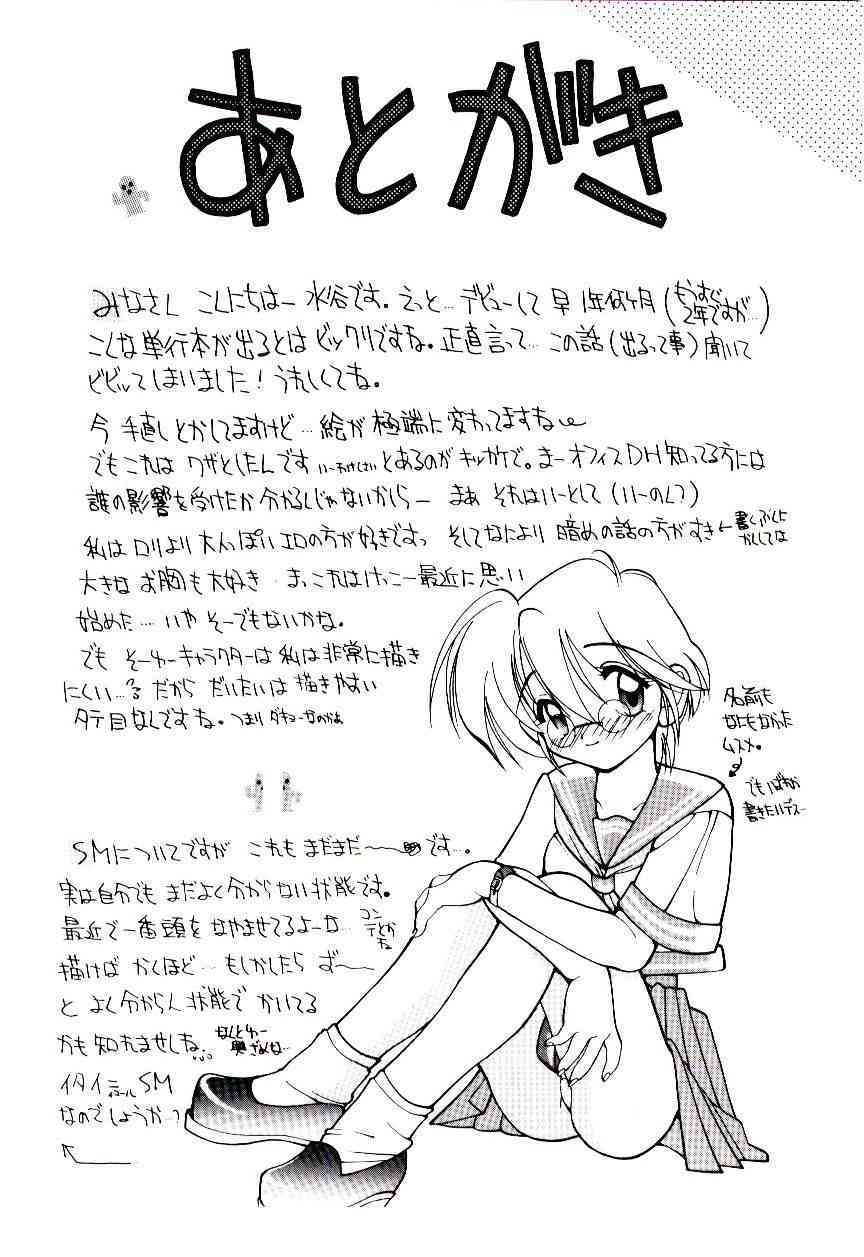 あとがき
みなさん こんにちはー 水谷です。えっと… デビューして 早 1年何ヶ月 (もうすぐ2年ですが…)
こんな単行本が出るとは ビックリですね。正直言って… この話(出るって事)聞いて
ビビッてしまいました！うれしくてね。
今 手直しとかしてますけど… 絵が極端に変わってますね
でもこれは ワザとしたんです とあるのがキッカケで。まー オフィスDH知ってる方には
誰の影響を受けたか分かるんじゃないかしらー まぁ それはいーとして(いーのん?)
私は ロリより 大人っぽい エロの方が好きですっ そしてなにより 暗めの話の方がすき
大きな お胸も大好き まっこれはけっこー最近に思い
始めた… いや そーでもないかな。
でも そーゆーキャラクターは 私は非常に描き
にくい…。だから だいたいは 描きやすい
タテ目なんですね。つまり
名前も
なにもなかった
ムスメ。
でも
書きたいデスー
SMについてですが これも まだまだ〜 です…。
実は自分でも まだよく分からない状態です。
最近で一番頭を なやませてるよーな… コンテとかね
描けば かくほど… もしかしたら ずー〜
と よく分からん状態で かいてる
かも 知れませんね。
イタイ SM
なのでしょうか…?